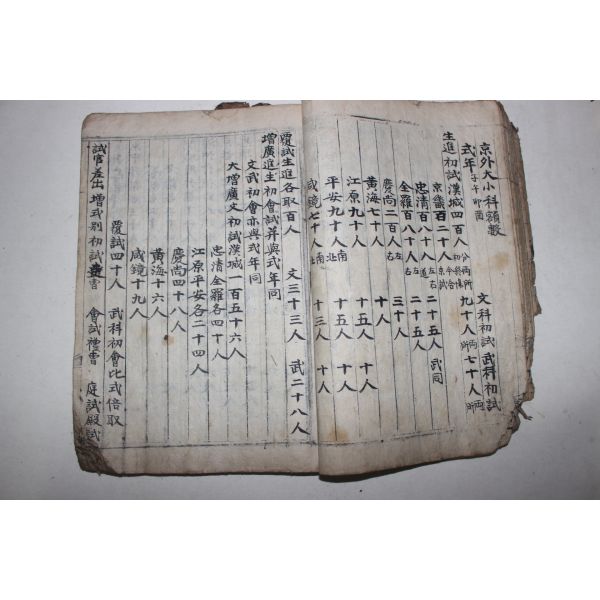 京外大小科額數
式年子午卯酉 文科初試 武科初試
生進初試漢城四百人 分兩所 九十人 兩所 七十人 兩所
京畿百二十人 京試 二十五人 武同
忠清百八十人 左右道 二十五人
全羅百八十人 左右 三十人
慶尚二百人 左右 三十人
黃海七十人 十人
江原九十人 十五人 十人
平安九十人 南北 十五人 十人
咸鏡七十人 南北 十三人 十人
覆試生進各取百人 文三十三人 武二十八人
增廣進生初會試并與式年同
文武初會亦與式年同
大增廣文初試漢城一百五十六人
忠清全羅各四十人
江原平安各二十四人
慶尚四十八人
黃海十六人
咸鏡十九人
覆試四十人 武科初會比式倍取
試官差出 增式別初試 會試禮曹 庭試殿試